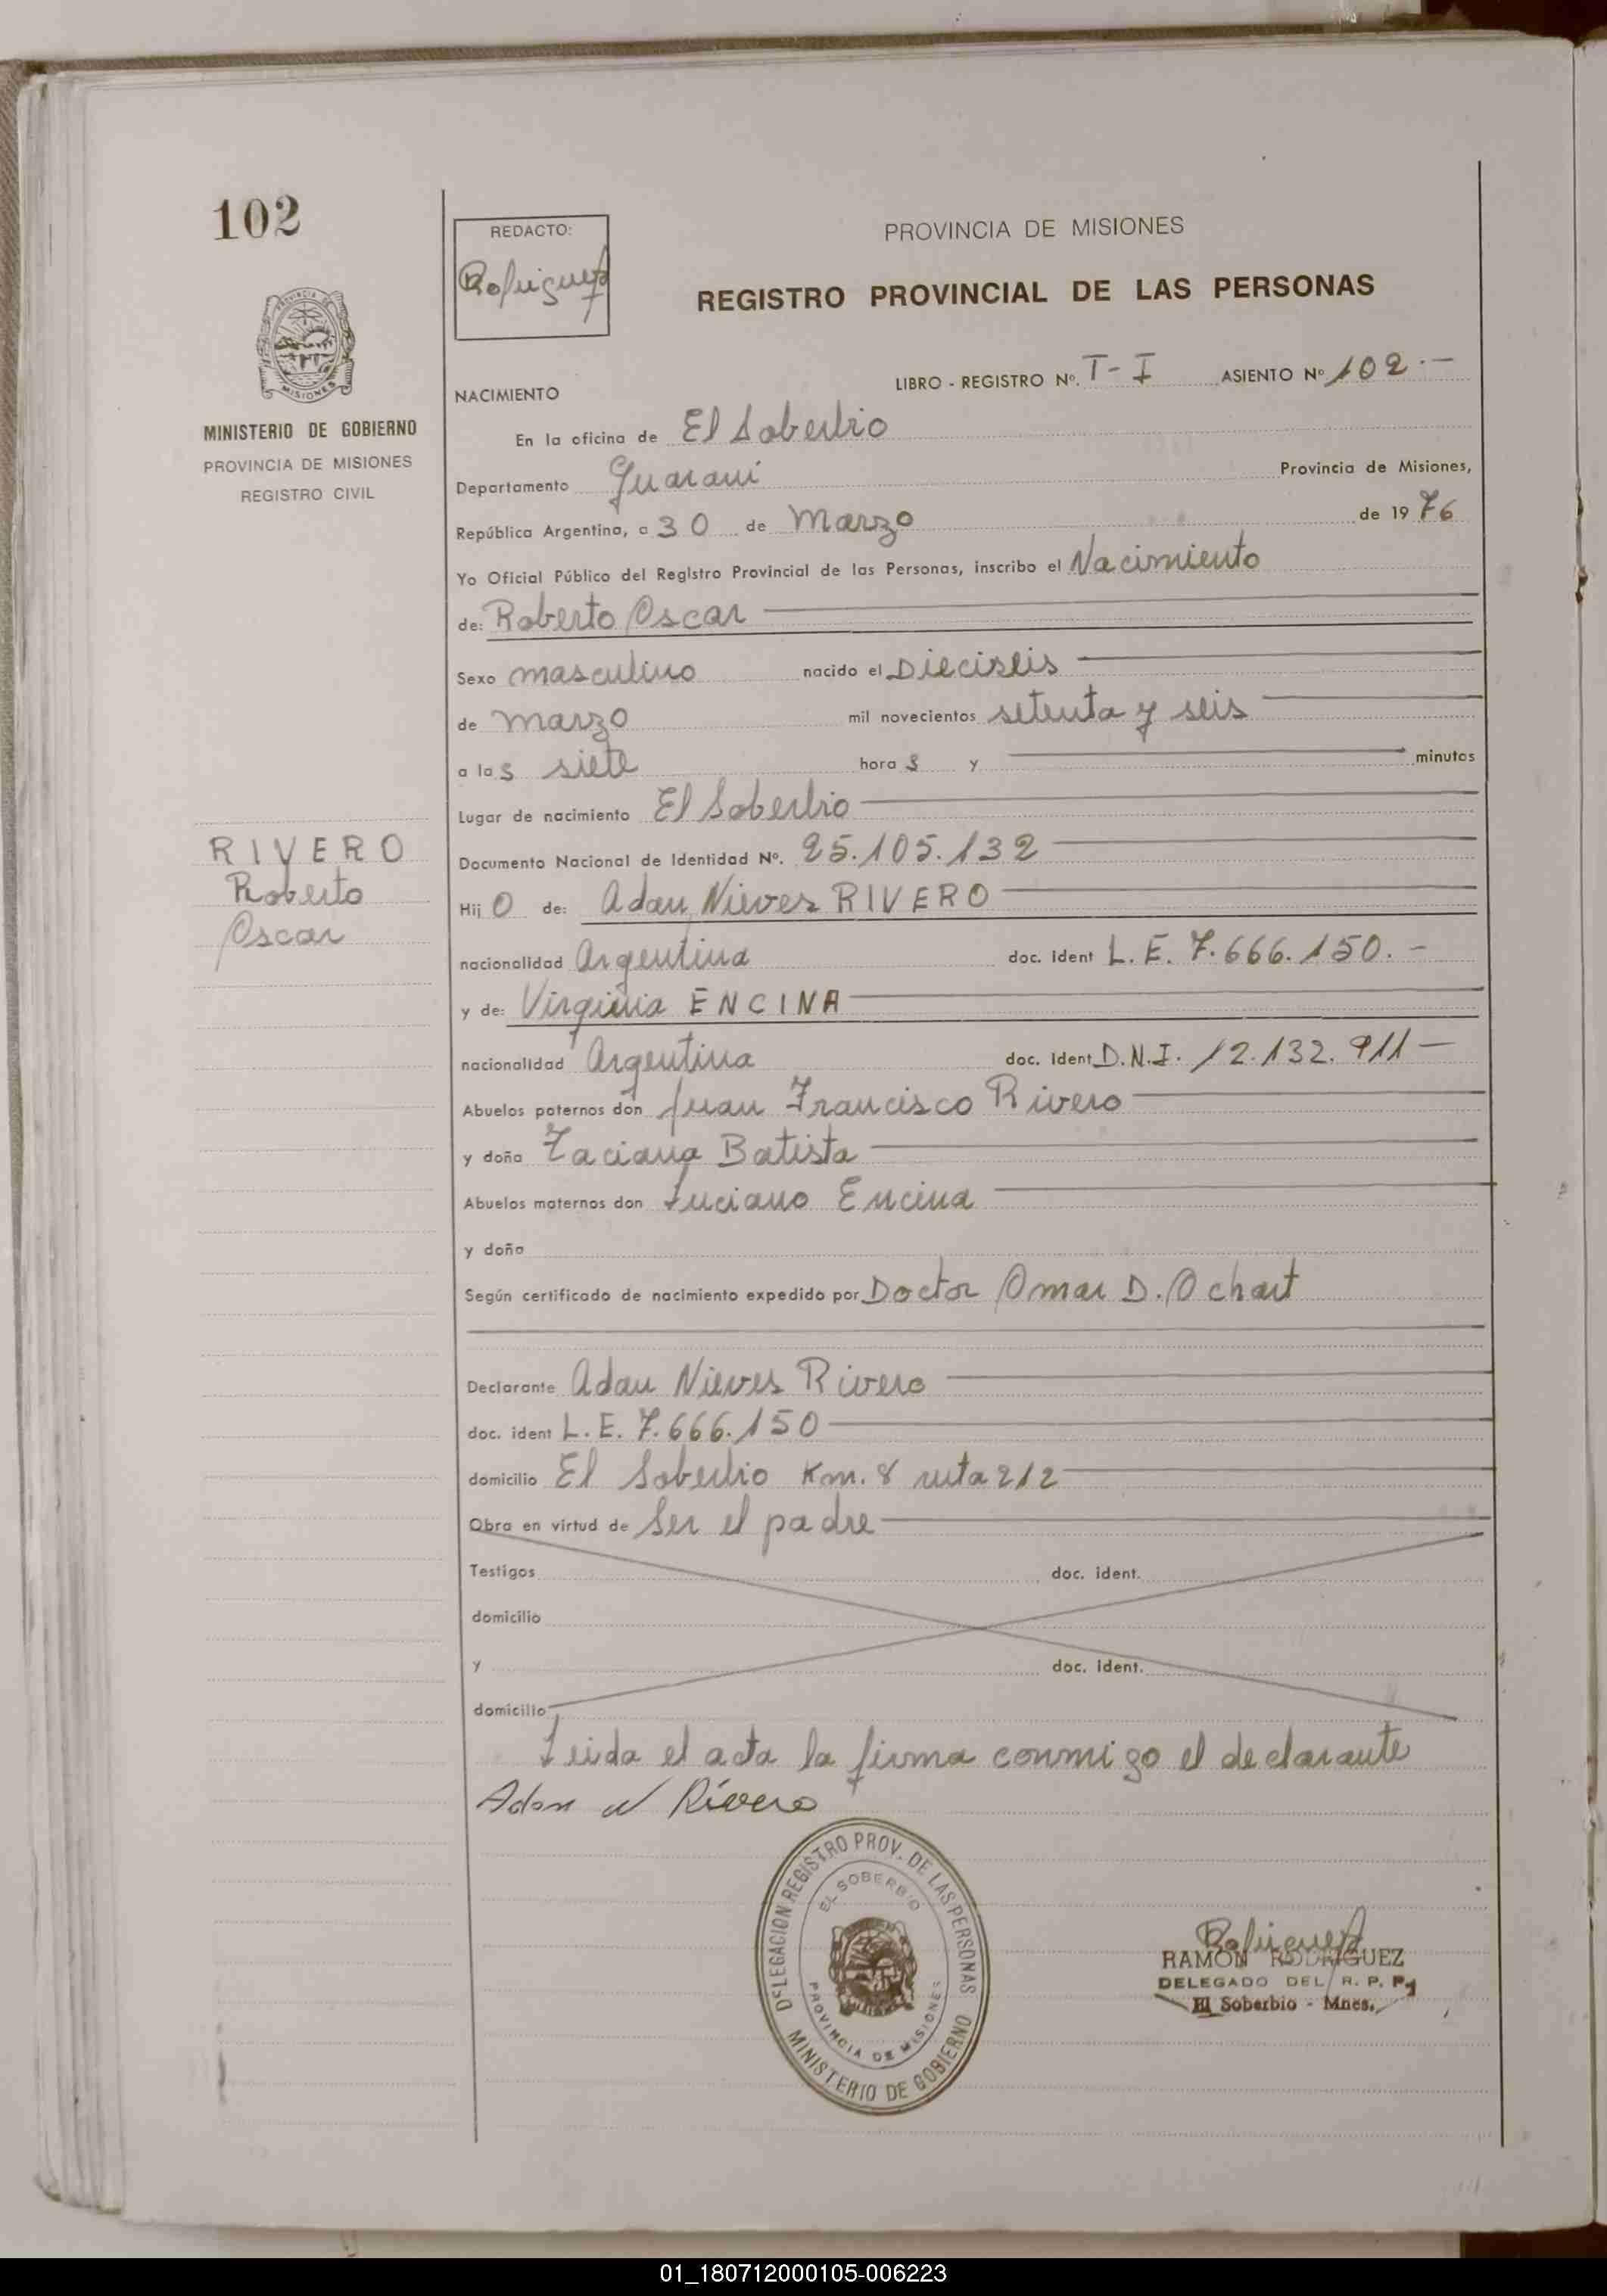 102
REDACTO:
Rodriguez
PROVINCIA DE MISIONES
REGISTRO PROVINCIAL DE LAS PERSONAS
MISIONES
MINISTERIO DE GOBIERNO
PROVINCIA DE MISIONES
REGISTRO CIVIL
NACIMIENTO
LIBRO - REGISTRO Nº. T-I ASIENTO Nº 102.—
En la oficina de El Soberbio
Departamento Guaraní Provincia de Misiones,
República Argentina, a 30 de Marzo de 1976
Yo Oficial Público del Registro Provincial de las Personas, inscribo el Nacimiento
de: Roberto Oscar
Sexo masculino nacido el Dieciseis
de marzo mil novecientos setenta y seis
a las siete horas y minutos
Lugar de nacimiento El Soberbio
RIVERO
Roberto
Oscar
Documento Nacional de Identidad Nº. 25.105.132
Hijo de: Adan Nieves RIVERO
nacionalidad Argentina doc. ident L. E. 7.666.150.-
y de: Virginia ENCINA
nacionalidad Argentina doc. Ident D.N.I. 12.132.911—
Abuelos paternos don Juan Francisco Rivero
y doña Taciana Batista
Abuelos maternos don Luciano Encina
y doña
Según certificado de nacimiento expedido por Doctor Omar D. Ochart
Declarante Adan Nieves Rivero
doc. ident L. E. 7.666.150
domicilio El Soberbio Km. 8 ruta 212
Obra en virtud de Ser el padre
Testigos doc. ident.
domicilio
y doc. ident.
domicilio
Leida el acta la firma conmigo el declarante
Adan N Rivero
DELEGACION REGISTRO PROV. DE LAS PERSONAS
EL SOBERBIO
PROVINCIA DE MISIONES
MINISTERIO DE GOBIERNO
Rodriguez
RAMÓN RODRIGUEZ
DELEGADO DEL R. P. P.
El Soberbio - Mnes.
01_180712000105-006223